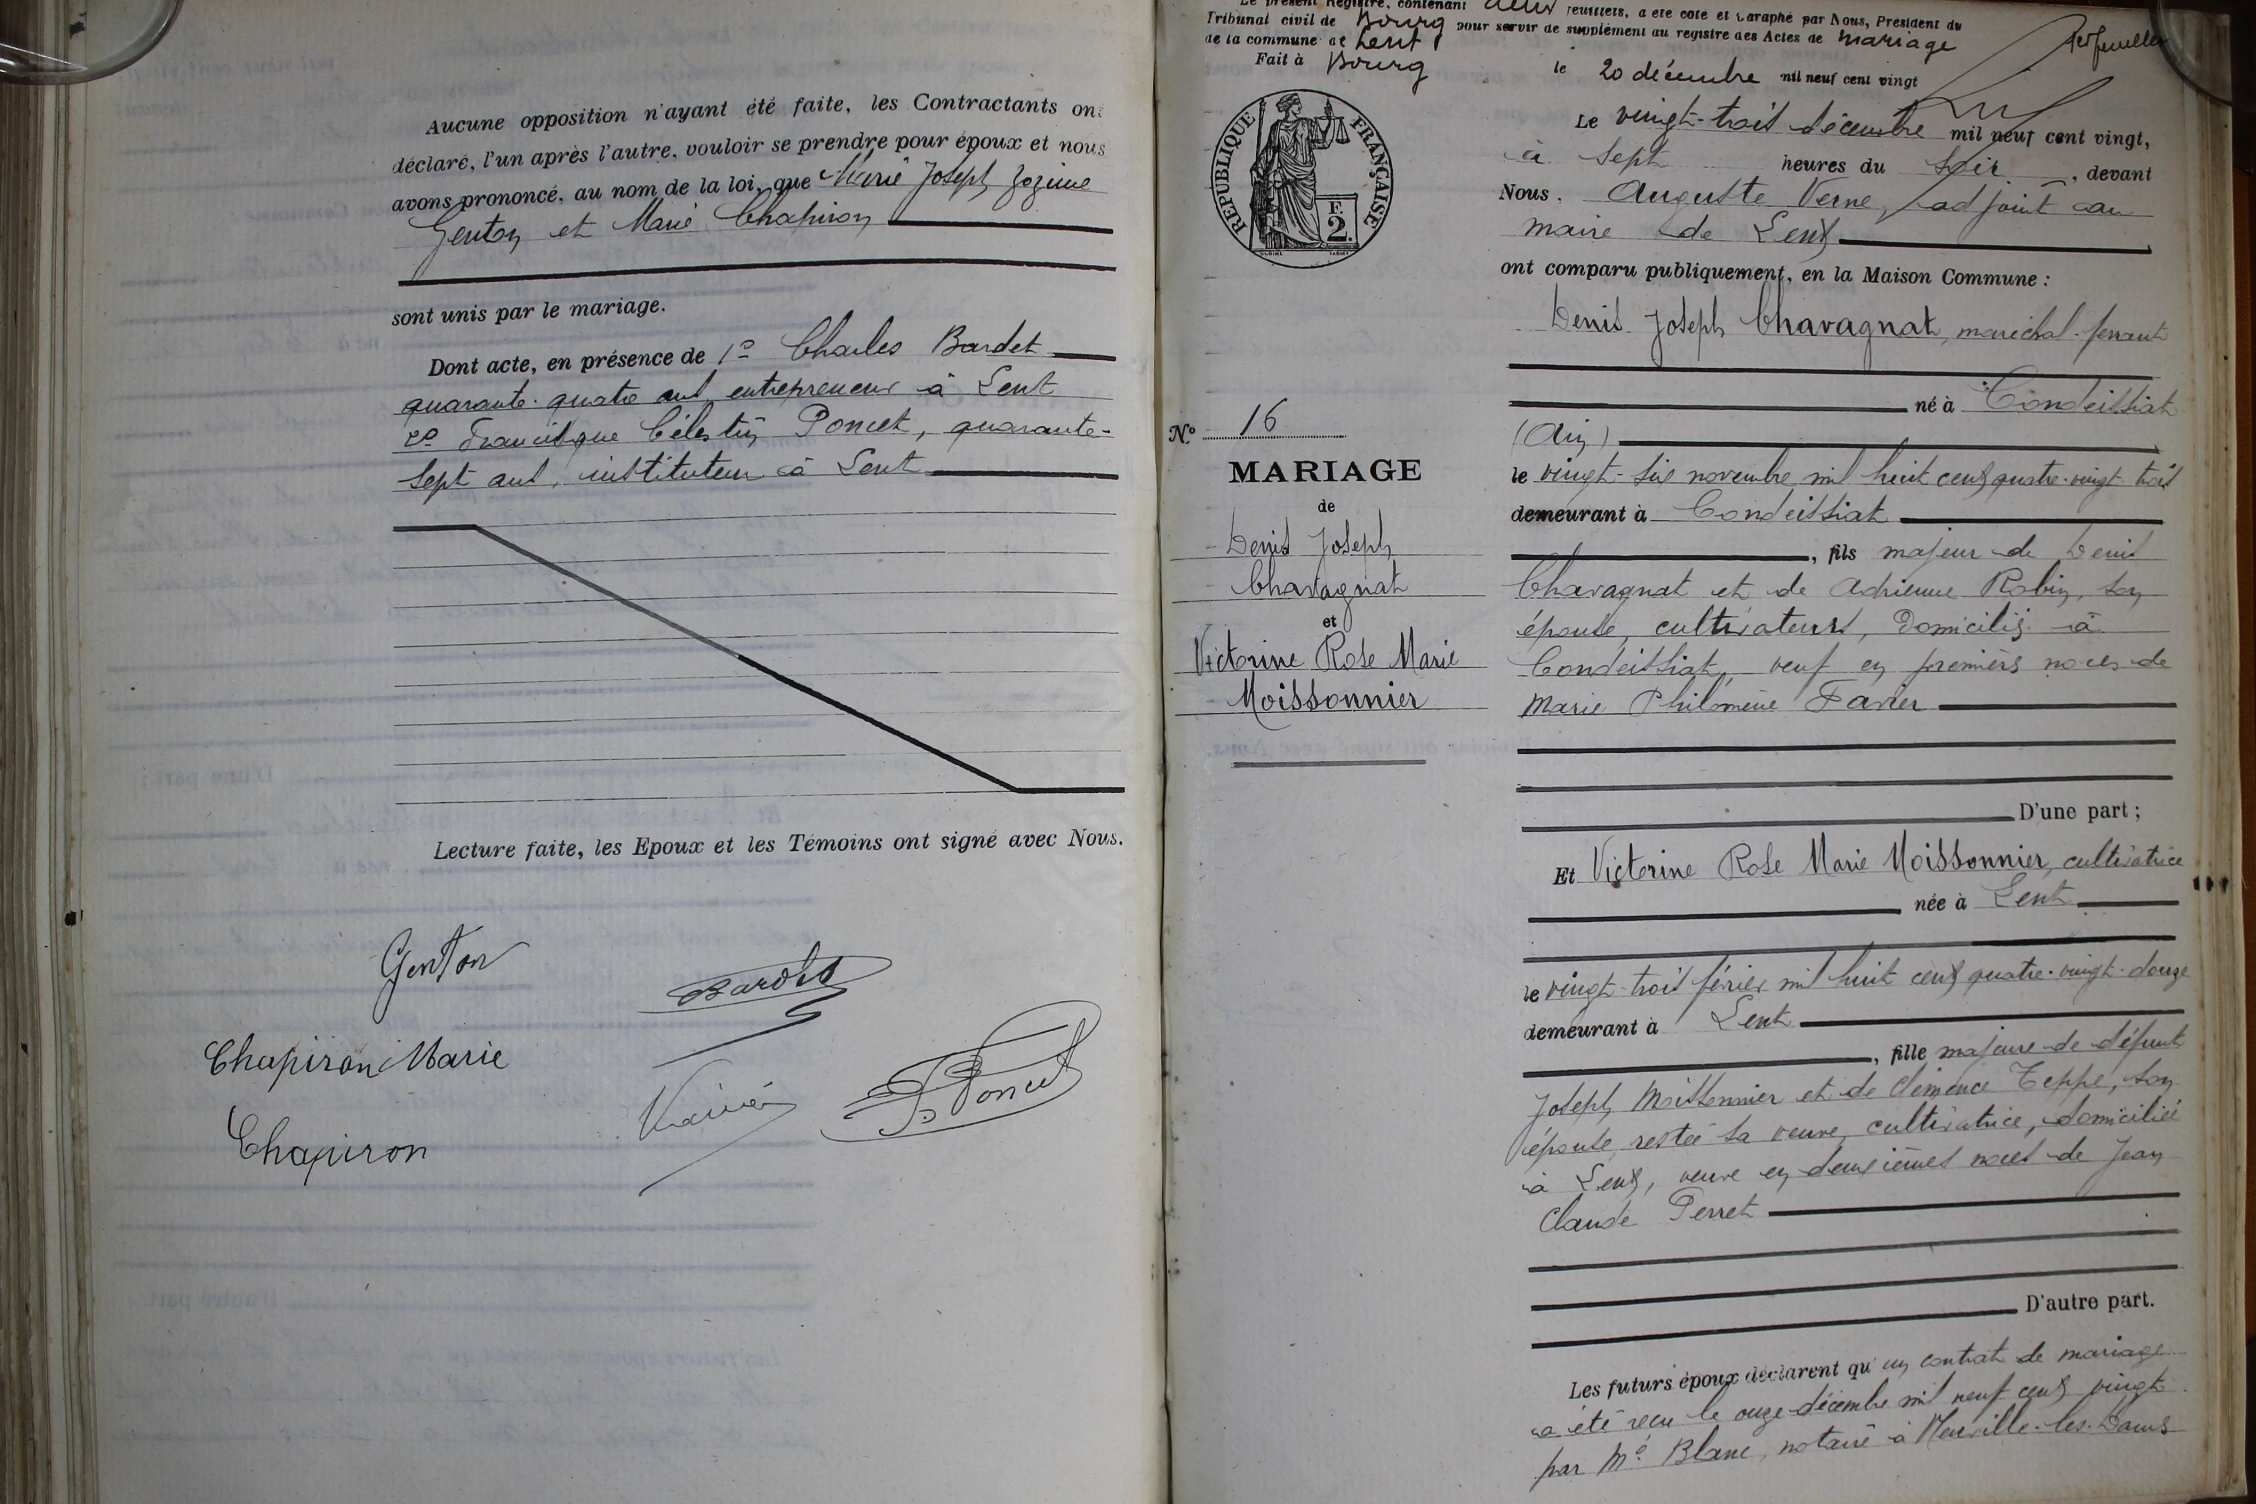 Aucune opposition n'ayant été faite, les Contractants ont
déclaré, l'un après l'autre, vouloir se prendre pour époux et nous
avons prononcé, au nom de la loi, que Marie Joseph Zozime
Genton et Marie Chapiron
sont unis par le mariage.
Dont acte, en présence de 1º Charles Bardet
quarante-quatre ans, entrepreneur à Lent
2º Francisque Célestin Poncet, quarante-
sept ans, instituteur à Lent
Lecture faite, les Epoux et les Témoins ont signé avec Nous.
Genton
Bardet
Chapiron Marie
Poncet
Chapiron
Le présent Registre, contenant deux feuillets, a été coté et paraphé par Nous, Président du
Tribunal civil de Bourg pour servir de supplément au registre des Actes de mariage
de la commune de Lent
Fait à Bourg le 20 décembre mil neuf cent vingt
1er feuillet
RÉPUBLIQUE FRANÇAISE
F.
2.
Nº 16
MARIAGE
de
Denis Joseph
Chavagnat
et
Victorine Rose Marie
Moissonnier
Le vingt-trois décembre mil neuf cent vingt,
à sept heures du soir, devant
Nous, Auguste Verne, adjoint au
maire de Lent
ont comparu publiquement, en la Maison Commune :
Denis Joseph Chavagnat, maréchal-ferrant
né à Condeissiat
(Ain)
le vingt-six novembre mil huit cent quatre-vingt-trois
demeurant à Condeissiat
, fils majeur de Denis
Chavagnat et de Adrienne Robin, son
épouse, cultivateurs, domiciliés à
Condeissiat, veuf en premières noces de
Marie Philomène Favier
D'une part ;
Et Victorine Rose Marie Moissonnier, cultivatrice
née à Lent
le vingt-trois février mil huit cent quatre-vingt-douze
demeurant à Lent
, fille majeure de défunt
Joseph Moissonnier et de Clémence Teppe, son
épouse, restée sa veuve, cultivatrice, domiciliée
à Lent, veuve en deuxièmes noces de Jean
Claude Perret
D'autre part.
Les futurs époux déclarent qu'un contrat de mariage
a été reçu le onze décembre mil neuf cent vingt
par Mº Blanc, notaire à Neuville-les-Dames